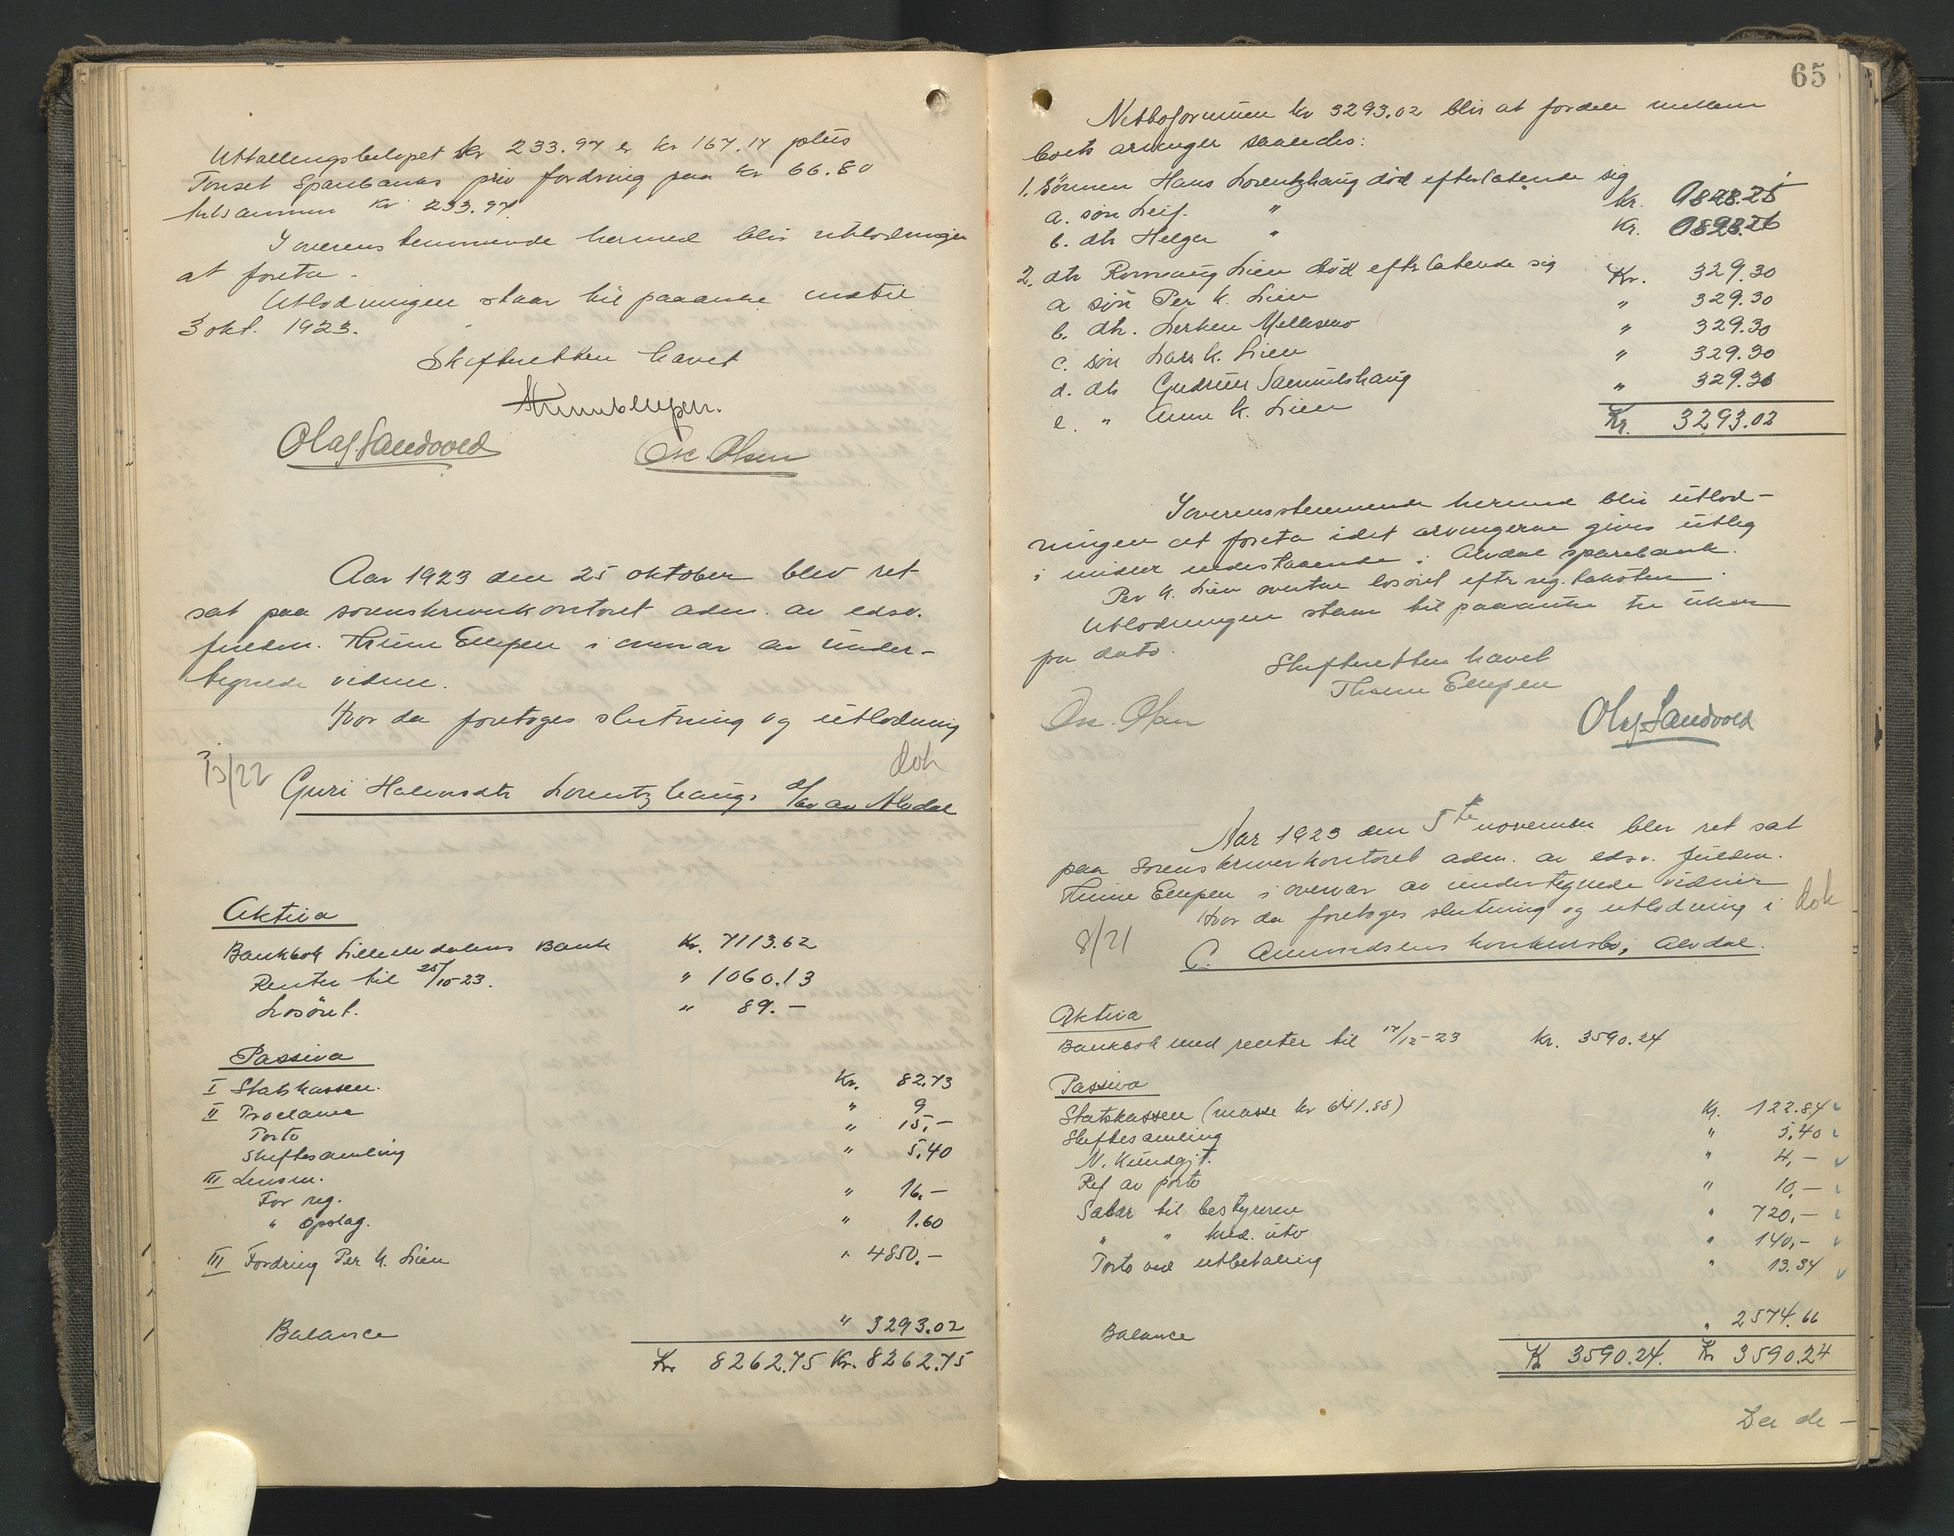 Uttallingsbeløpet kr 233.97 er kr 167.17 plus
Tønset Sparebanks priv fordring paa kr 66.80
tilsammen kr 233.97.
I overensstemmende hermed blir utlodningen
at foreta.
Utlodningen staar til paaanke indtil
3 okt. 1923.
Skifteretten hævet
Olaf Sandvold Osc. Olsen
Aar 1923 den 25 oktober blev ret
sat paa sorenskriverkontoret adm. av edsv.
fuldm. Thune Ellefsen i overvær av under-
tegnede vidner.
Hvor da foretoges slutning og utlodning
i
13/22 dok
Guri Halvorsdtr Lorentzhaugs d/bo av Alvdal
Aktiva
Bankbok Lilleelvdalens Bank Kr. 7113.62
Renter til 25/10-23. " 1060.13
Løsøret. " 89.-
Passiva
I Statskassen. Kr. 82.73
II Proclama " 9
Porto " 15,-
Skiftesamling " 5.40
III Lensm.
For reg. " 16,-
" opslag. " 1.60
III Fordring Per K. Lien " 4850.-
Balance " 3293.02
Kr 8262.75 Kr. 8262.75
65
Nettoformuen kr 3293.02 blir at fordele mellem
boets arvinger saaledes:
1. Sønnen Hans Lorentzhaug død efterlatende sig
a. søn Leif " kr. 0823.25
b. dtr Helga " kr. 0823.26
2. dtr Ronnaug Lien død eftrlatende sig
a søn Per K. Lien Kr. 329.30
b. dtr. Mellesmo " 329.30
c. søn Lars K. Lien " 329.30
d. dtr Gudrun Samuelshaug " 329.30
e. " Anne K. Lien " 329.30
Kr. 3293.02
I overensstemmende hermed blir utlod-
ningen at foreta idet arvingerne gives utlæg
i midler indestaaende i Alvdal sparebank.
Per K. Lien overtar løsøret eftr reg. taksten.
Utlodningen staar til paaanke tre uker
fra dato.
Skifteretten hævet
Thune Ellefsen
Osc. Olsen Olaf Sandvold
Aar 1923 den 5te november blev ret sat
paa sorenskriverkontoret adm. av edsv. fuldm.
Thune Ellefsen i overvær av undertegnede vidner
Hvor da foretoges slutning og utlodning i dok
8/21
C. Amundsens konkursbo, Alvdal.
Aktiva
Bankbok med renter til 17/12-23 kr. 3590.24
Passiva
Statskassen (masse kr 641.88) Kr. 122.84
Skiftesamling " 5.40
N. Kundgj.t. " 4,-
Ref av porto " 10,-
Salær til bestyreren " 720,-
" " kred. utv " 140,-
Porto ved utbetaling " 13.34
Balance " 2574.66
K 3590.24. Kr 3590.24
Da de -